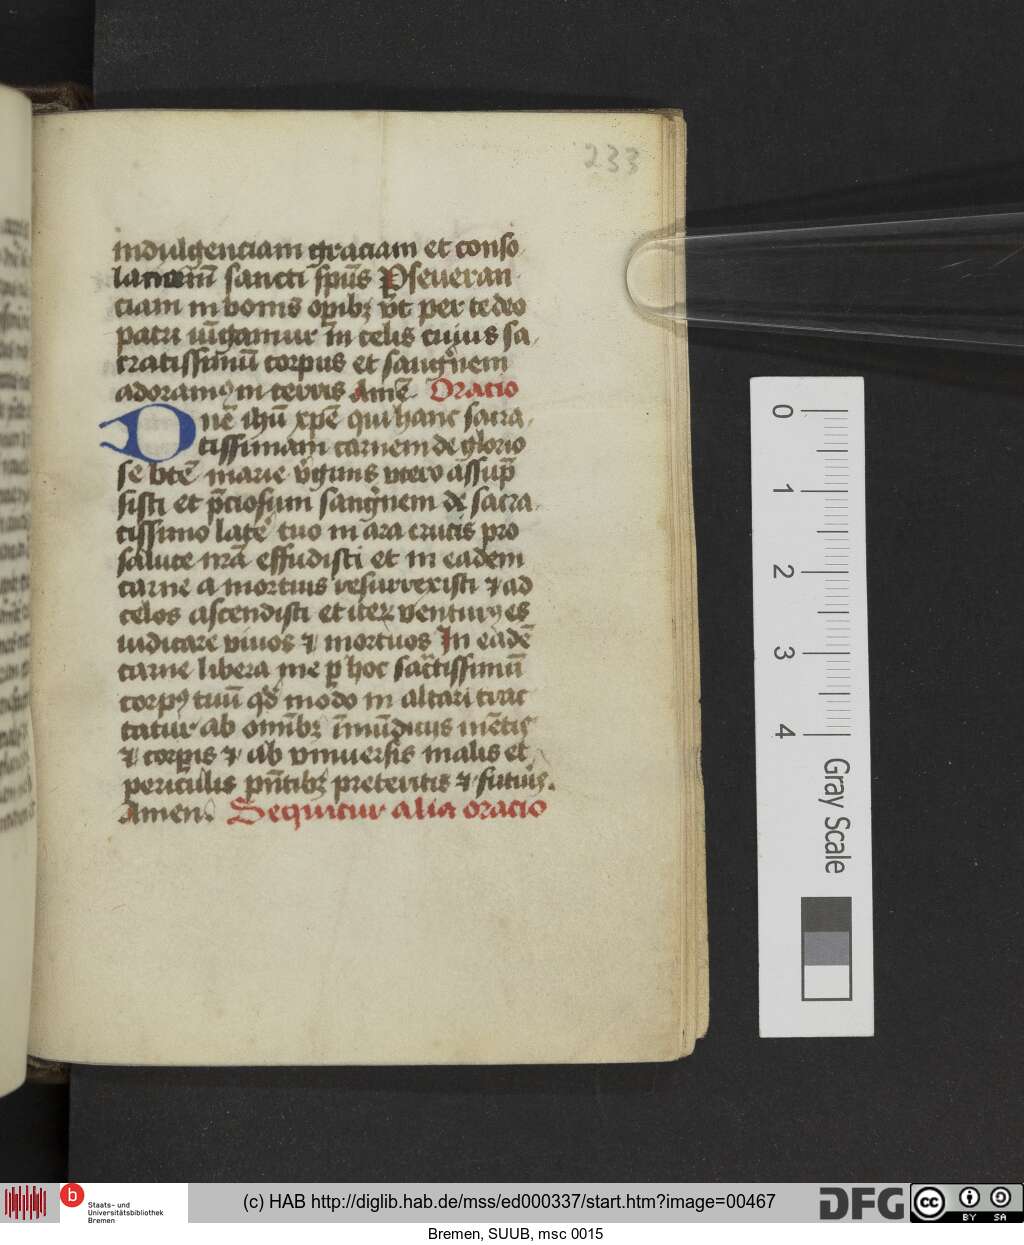 233
indulgenciam graciam et conso
lationem̄ sancti sp̄us Pseueran
ciam in bonis opibꝫ vt per te deo
patri iūgamur In celis cuius sa
cratissimū corpus et sanguinem
adoramꝰ in terris Amē Oratio
Dnē ihū xpē qui hanc sacra
tissimam carnem de glorio
se btē marie v̄ginis vtero assūp
sisti et p̄ciosum sanguinem de sacra
tissimo latē tuo in ara crucis pro
salute nr̄a effudisti et in eadem
carne a mortuis resurrexisti ⁊ ad
celos ascendisti et iteꝝ venturꝰ es
iudicare viuos ⁊ mortuos In eadē
carne libera me p hoc sāctissimū
corpꝰ tuū qd modo in altari trac
tatur ab omībꝫ īmūdiciis mētis
⁊ corpis ⁊ ab vniuersis malis et
periculis pn̄tibꝫ preteritis ⁊ futuris.
Amen. Sequitur alia oracio
0
1
2
3
4
Gray Scale
b
Staats- und
Universitätsbibliothek
Bremen
(c) HAB http://diglib.hab.de/mss/ed000337/start.htm?image=00467
DFG
cc
BY SA
Bremen, SUUB, msc 0015